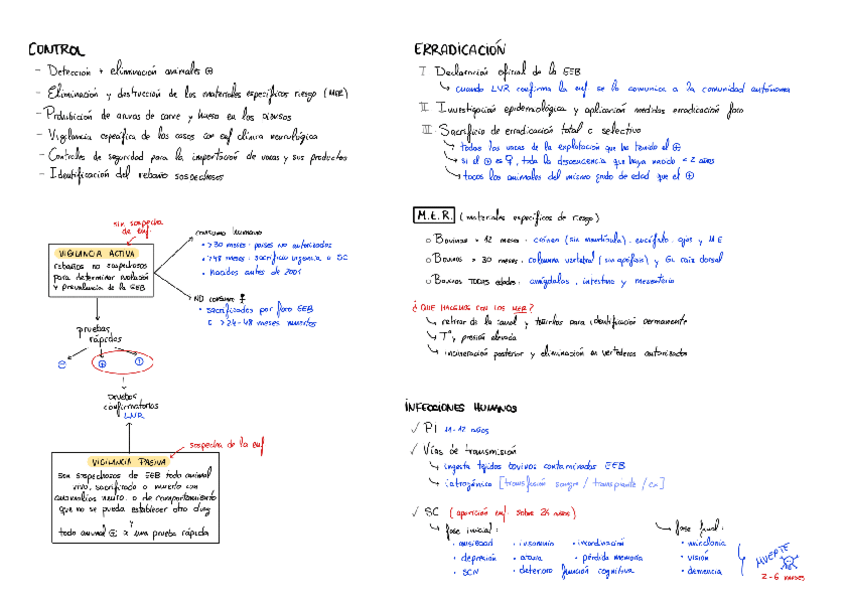 CONTROL
- Detección + eliminación animales ⊕
- Eliminación y destrucción de los materiales específicos riesgo (MER)
- Prohibición de harinas de carne y hueso en los piensos
- Vigilancia específica de los casos con enf clínica neurológica
- Controles de seguridad para la importación de vacas y sus productos
- Identificación del rebaño sospechoso
sin sospecha de enf.
VIGILANCIA ACTIVA
rebaños no sospechosos
para determinar evolución
y prevalencia de la EEB
consumo humano
• >30 meses: países no autorizados
• >48 meses: sacrificio urgencia o SC
• Nacidos antes de 2001
NO consumo
• sacrificados por foro EEB
>24-48 meses muertos
pruebas
rápidas
⊖ ⊕
pruebas
confirmatorias
LNR
sospecha de la enf
VIGILANCIA PASIVA
son sospechosos de EEB todo animal
vivo, sacrificado o muerto con
neuro. o de comportamiento
que no se pueda establecer otro diag
y
todo animal ⊕ a una prueba rápida
ERRADICACIÓN
I. Declaración oficial de la EEB
↳ cuando LNR confirma la enf se le comunica a la comunidad autónoma
II. Investigación epidemiológica y aplicación medidas erradicación foco
III. Sacrificio de erradicación total o selectivo
↳ todas las vacas de la explotación que ha tenido el ⊕
↳ si el ⊕ es ♀, toda la descendencia que haya nacido < 2 años
↳ todos los animales del mismo grado de edad que el ⊕
M.E.R. (materiales específicos de riesgo)
o Bovinos > 12 meses: cráneo (sin mandíbula), encéfalo, ojos y ME
o Bovinos > 30 meses: columna vertebral (sin apófisis) y GL raíz dorsal
o Bovinos TODAS edades: amígdalas, intestino y mesenterio
¿QUE HACEMOS CON LOS MER?
↳ retirar de la canal y teñirlos para identificación permanente
↳ Tª y presión elevada
↳ incineración posterior y eliminación en vertederos autorizados
INFECCIONES HUMANOS
✓ PI 11-12 años
✓ Vías de transmisión
↳ ingesta tejidos bovinos contaminados EEB
↳ iatrogénica [transfusión sangre / transplante / cx]
✓ SC (aparición enf. sobre 26 años)
↳ fase inicial:
• ansiedad • insomnio • incordinación
• depresión • ataxia • pérdida memoria
• SCN • deterioro función cognitiva
↳ fase final:
• mioclonía
• visión
• demencia
MUERTE
2-6 meses